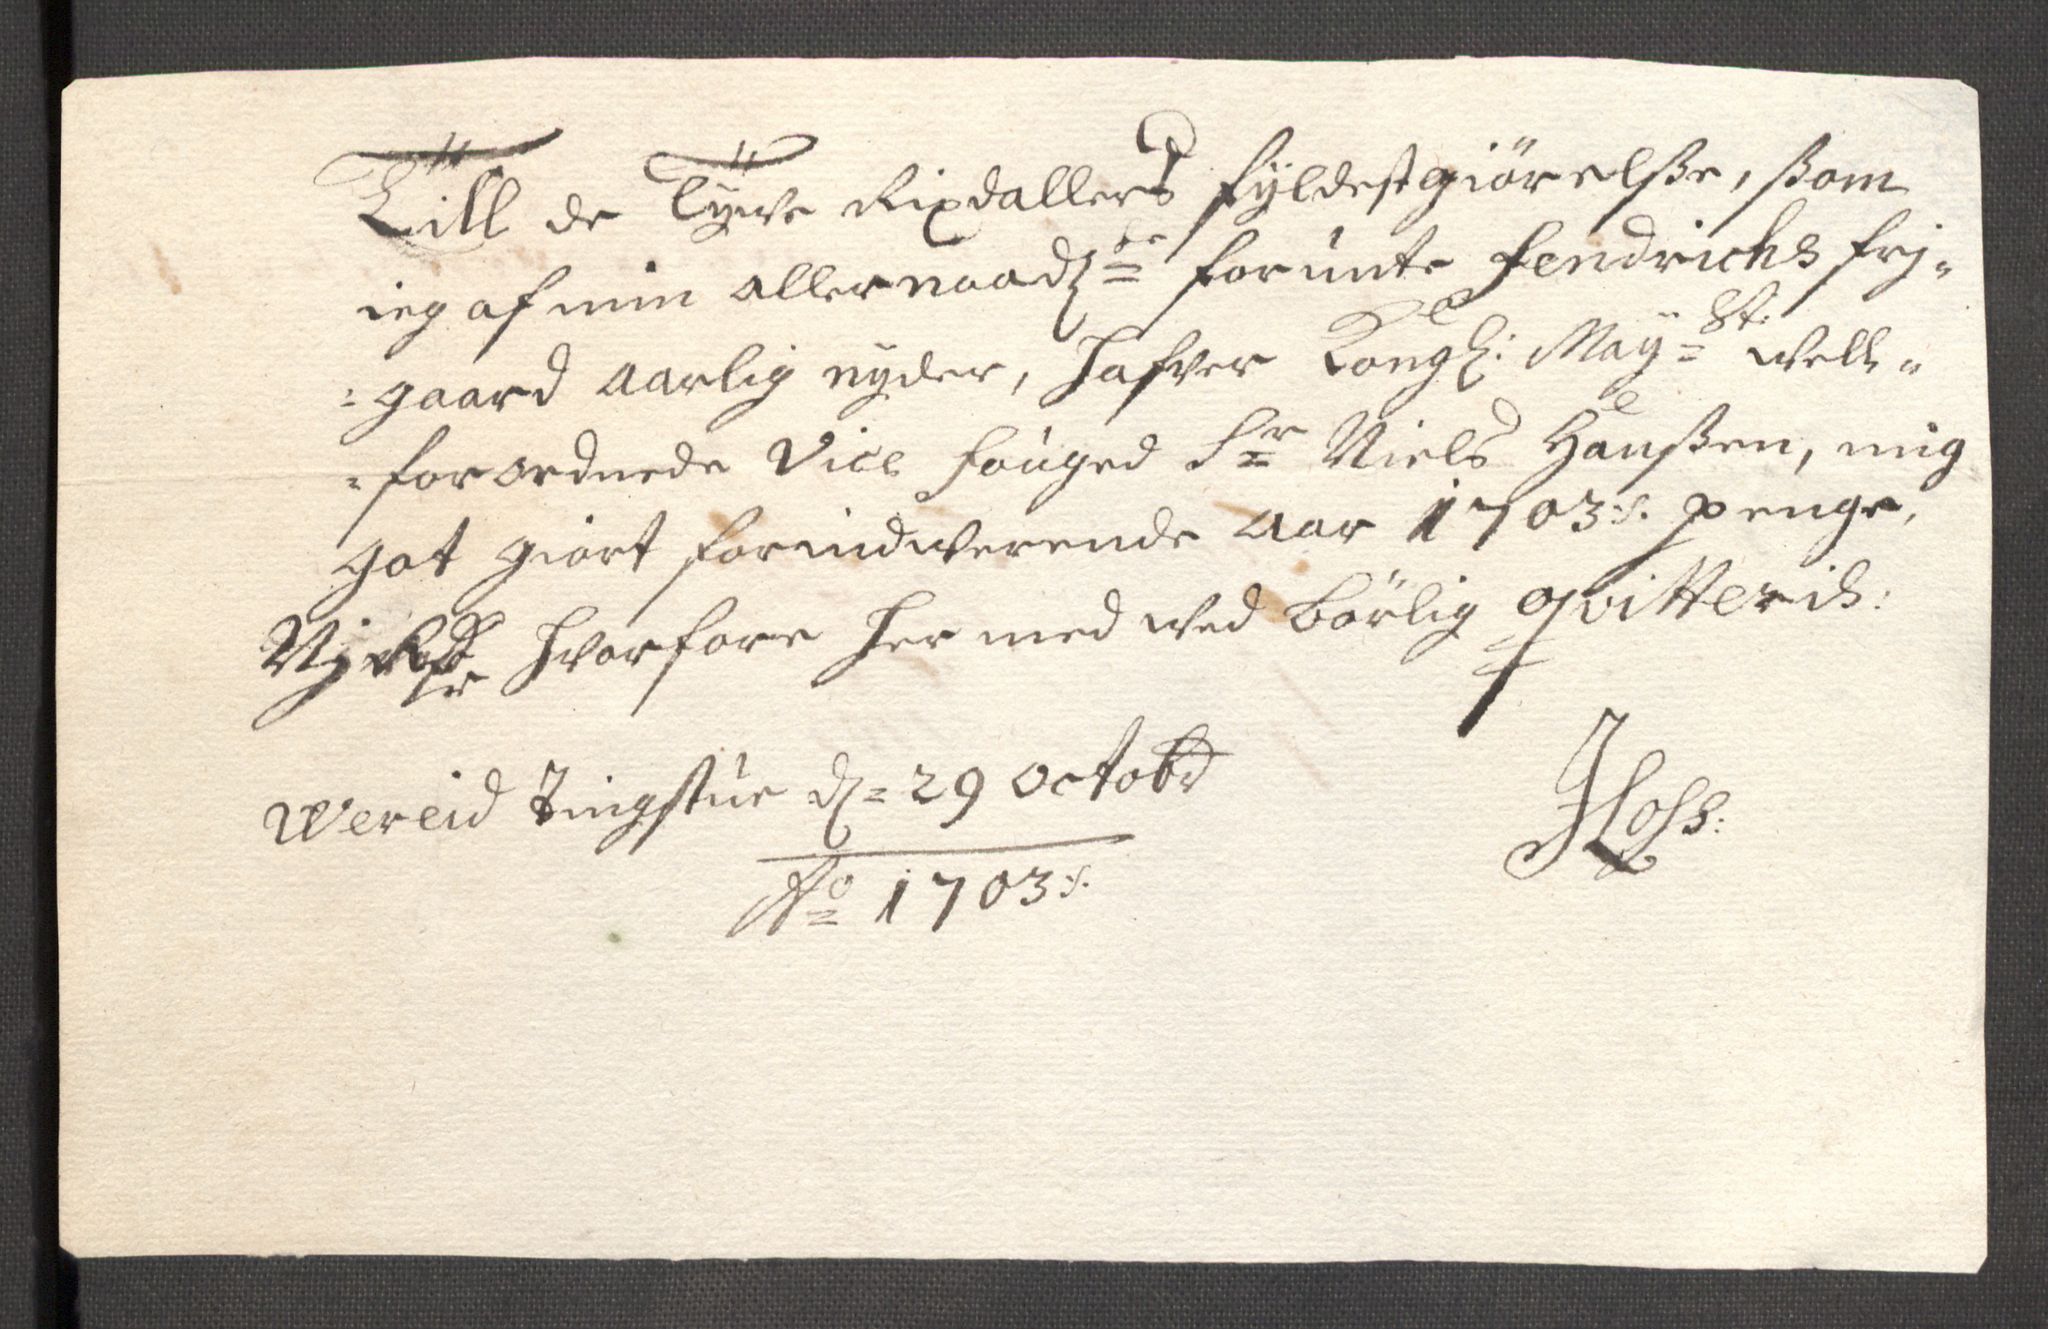 Till de Tÿve Rixdallers fÿldestgiörelsse, ssom
ieg af min allernaadste forunte Fendrichs frj=
=gaard aarlig nyder, hafver Kongl: Maÿst: well=
=forordnede Vice fouged Sr Niels Hanssen, mig
got giort for indwerende aar 1703:/: penge,
hvorfore her med wed börlig qvitteris:
Wereid Tingstue d= 29 Octobr
Ao 1703:/: